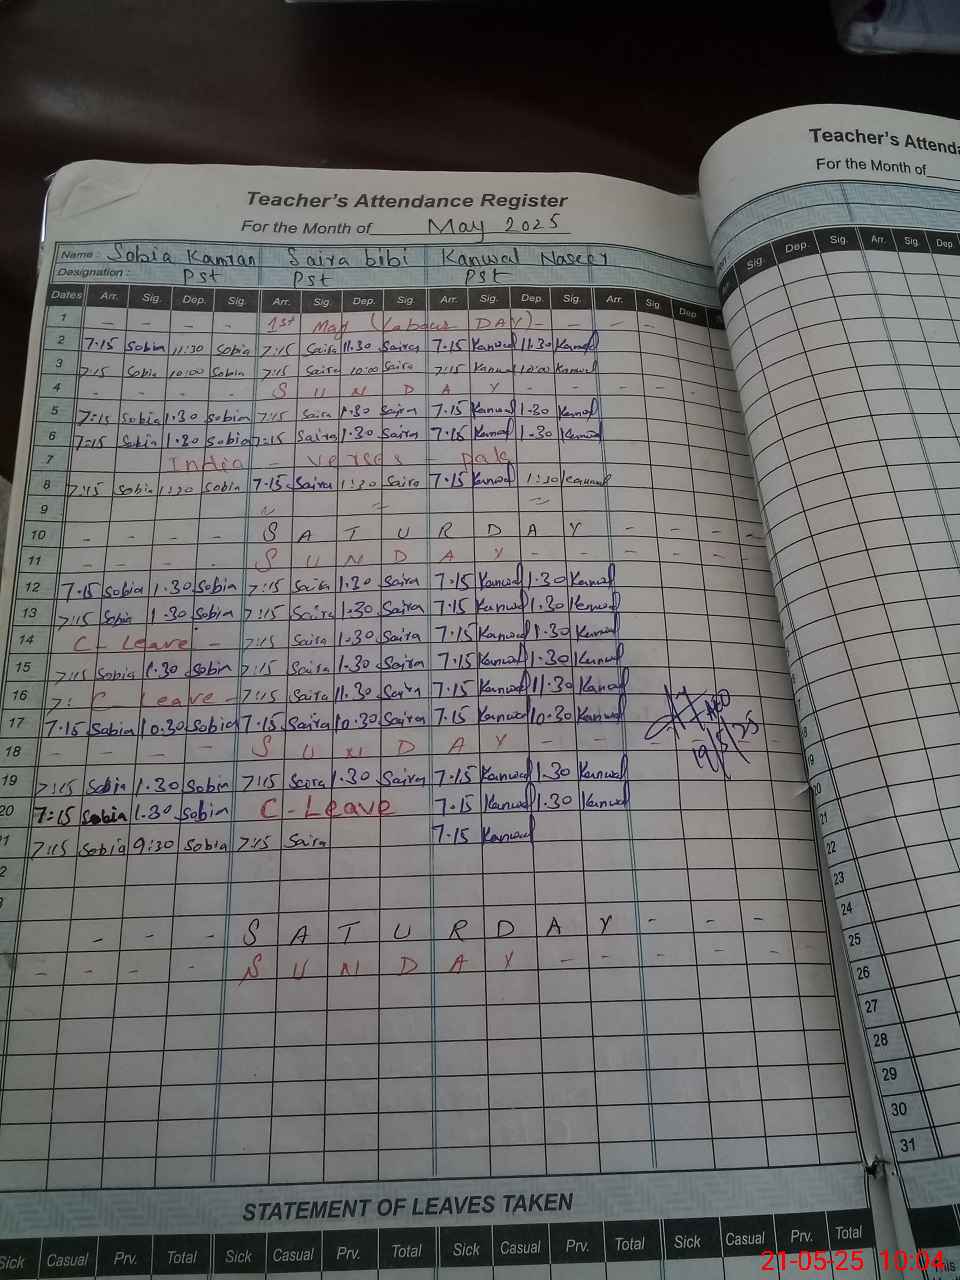 Teacher's Attendance Register
For the Month of May 2025
Name: Sobia Kamran Saira bibi Kanwal Naseer
Designation: Pst Pst Pst
Dates Arr. Sig. Dep. Sig. Arr. Sig. Dep. Sig. Arr. Sig. Dep. Sig. Arr. Sig. Dep
1 - - - - 1st May (Labour DAY) - - - - -
2 7.15 Sobia 11:30 Sobia 7:15 Saira 11.30 Saira 7.15 Kanwal 11.30 Kanwal
3 7:15 Sobia 10:00 Sobia 7:15 Saira 10:00 Saira 7:15 Kanwal 10:00 Kanwal
4 - - - - S U N D A Y - - - - - -
5 7:15 Sobia 1.30 Sobia 7:15 Saira 1.30 Saira 7.15 Kanwal 1.30 Kanwal
6 7:15 Sobia 1.30 Sobia 7:15 Saira 1.30 Saira 7.15 Kanwal 1.30 Kanwal
7 India - verses - pak
8 7:15 Sobia 1:30 Sobia 7.15 Saira 1:30 Saira 7.15 Kanwal 1:30 Kanwal
9
10 - - - - S A T U R D A Y - - - -
11 - - - - S U N D A Y - - - - - -
12 7.15 Sobia 1.30 Sobia 7:15 Saira 1.30 Saira 7.15 Kanwal 1.30 Kanwal
13 7:15 Sobia 1.30 Sobia 7:15 Saira 1.30 Saira 7.15 Kanwal 1.30 Kanwal
14 C-Leave - 7:15 Saira 1.30 Saira 7.15 Kanwal 1.30 Kanwal
15 7:15 Sobia 1.30 Sobia 7:15 Saira 1.30 Saira 7.15 Kanwal 1.30 Kanwal
16 7: C Leave - 7:15 Saira 11.30 Saira 7.15 Kanwal 11.30 Kanwal
17 7.15 Sobia 10.30 Sobia 7.15 Saira 10.30 Saira 7.15 Kanwal 10.30 Kanwal
AEO
19/5/25
18 - - - - S U N D A Y - - - - - -
19 7:15 Sobia 1.30 Sobia 7:15 Saira 1.30 Saira 7.15 Kanwal 1.30 Kanwal
20 7:15 Sobia 1.30 Sobia C-Leave 7.15 Kanwal 1.30 Kanwal
1 7:15 Sobia 9:30 Sobia 7:15 Saira 7.15 Kanwal
2
- - - S A T U R D A Y - - -
- - - - S U N D A Y - - - - - -
STATEMENT OF LEAVES TAKEN
Sick Casual Prv. Total Sick Casual Prv. Total Sick Casual Prv. Total Sick Casual Prv. Total
Teacher's Attenda
For the Month of
Sig. Dep. Sig. Arr. Sig. Dep.
20
21
22
23
24
25
26
27
28
29
30
31
This
21-05-25 10:04